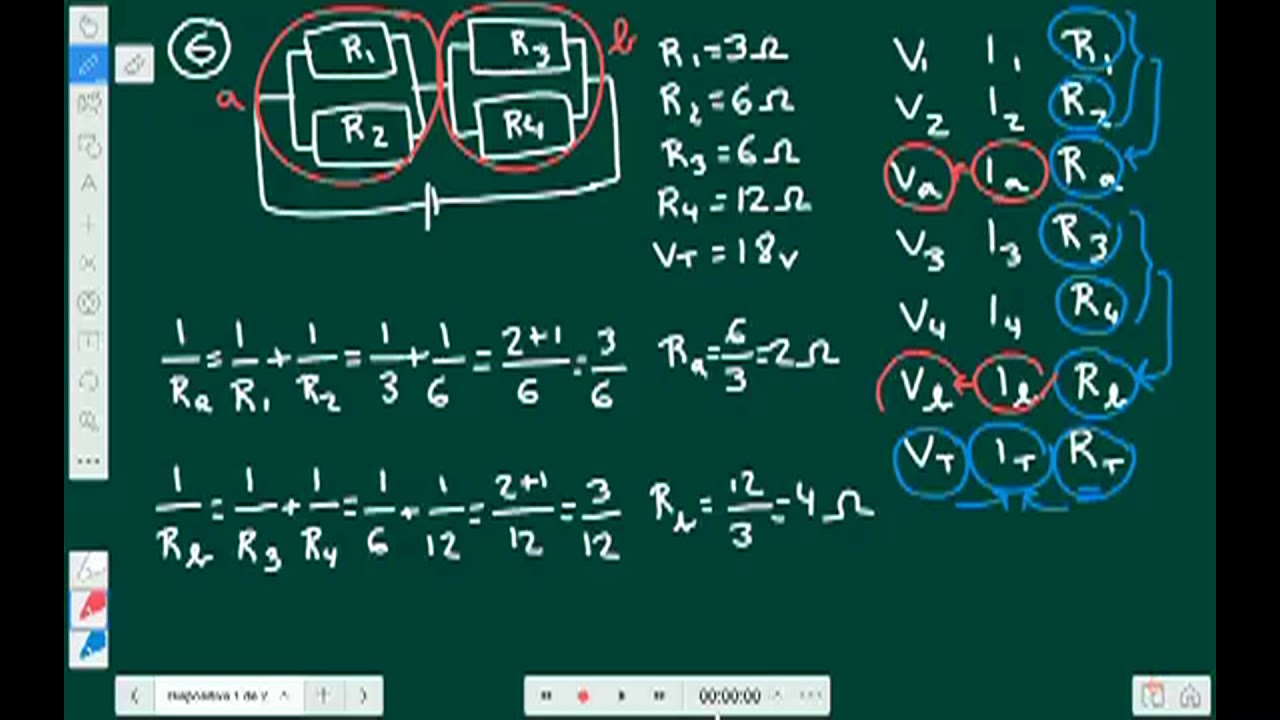 6
a
R1
R2
R3
R4
b
R1=3Ω
R2=6Ω
R3=6Ω
R4=12Ω
VT=18v
V1 I1 R1
V2 I2 R2
Va Ia Ra
V3 I3 R3
V4 I4 R4
Vb Ib Rb
VT IT RT
1/Ra = 1/R1 + 1/R2 = 1/3 + 1/6 = 2+1/6 = 3/6 Ra = 6/3 = 2Ω
1/Rb = 1/R3 + 1/R4 = 1/6 + 1/12 = 2+1/12 = 3/12 Rb = 12/3 = 4Ω
A
Diapositiva 1 de 2
00:00:00